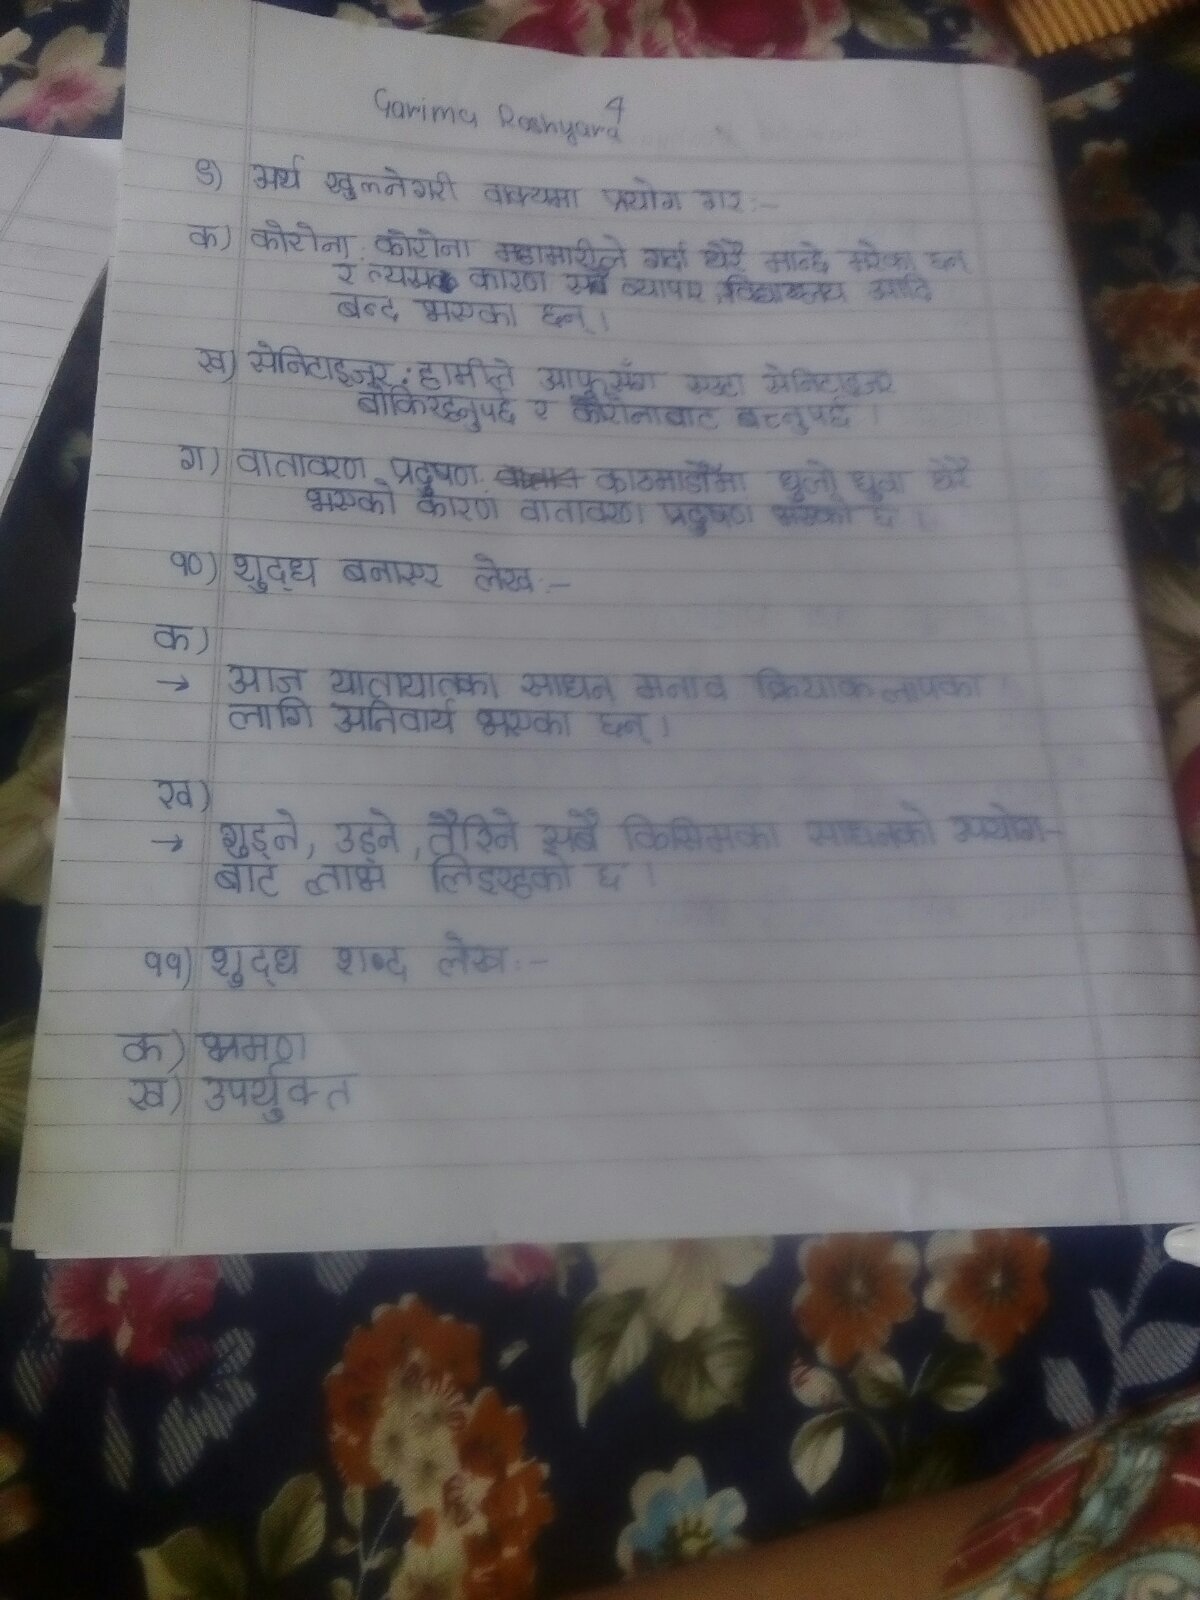 4
Garima Roshyara
९) अर्थ खुल्नेगरी वाक्यमा प्रयोग गर:-
क) कोरोना: कोरोना महामारीले गर्दा थेरै मान्छे मरेका छन्
र त्यसकै कारण सबै व्यापार, विद्यालय आदि
बन्द भएका छन्।
ख) सेनिटाइजर: हामीले आफूसँग एउटा सेनिटाइजर
बोकिरहनुपर्छ र कोरोनाबाट बच्नुपर्छ।
ग) वातावरण प्रदुषण: काठमाडौंमा धुलो धुवा थेरै
भएको कारण वातावरण प्रदुषण भएको छ।
१०) शुद्ध बनाएर लेख:-
क)
→ आज यातायातका साधन मनाव क्रियाकलापका
लागि अनिवार्य भएका छन्।
ख)
→ गुड्ने, उड्ने, तैरिने सबै किसिमका साधनको उपयोग-
बाट लाभ लिइरहको छ।
११) शुद्ध शब्द लेख:-
क) भ्रमण
ख) उपर्युक्त